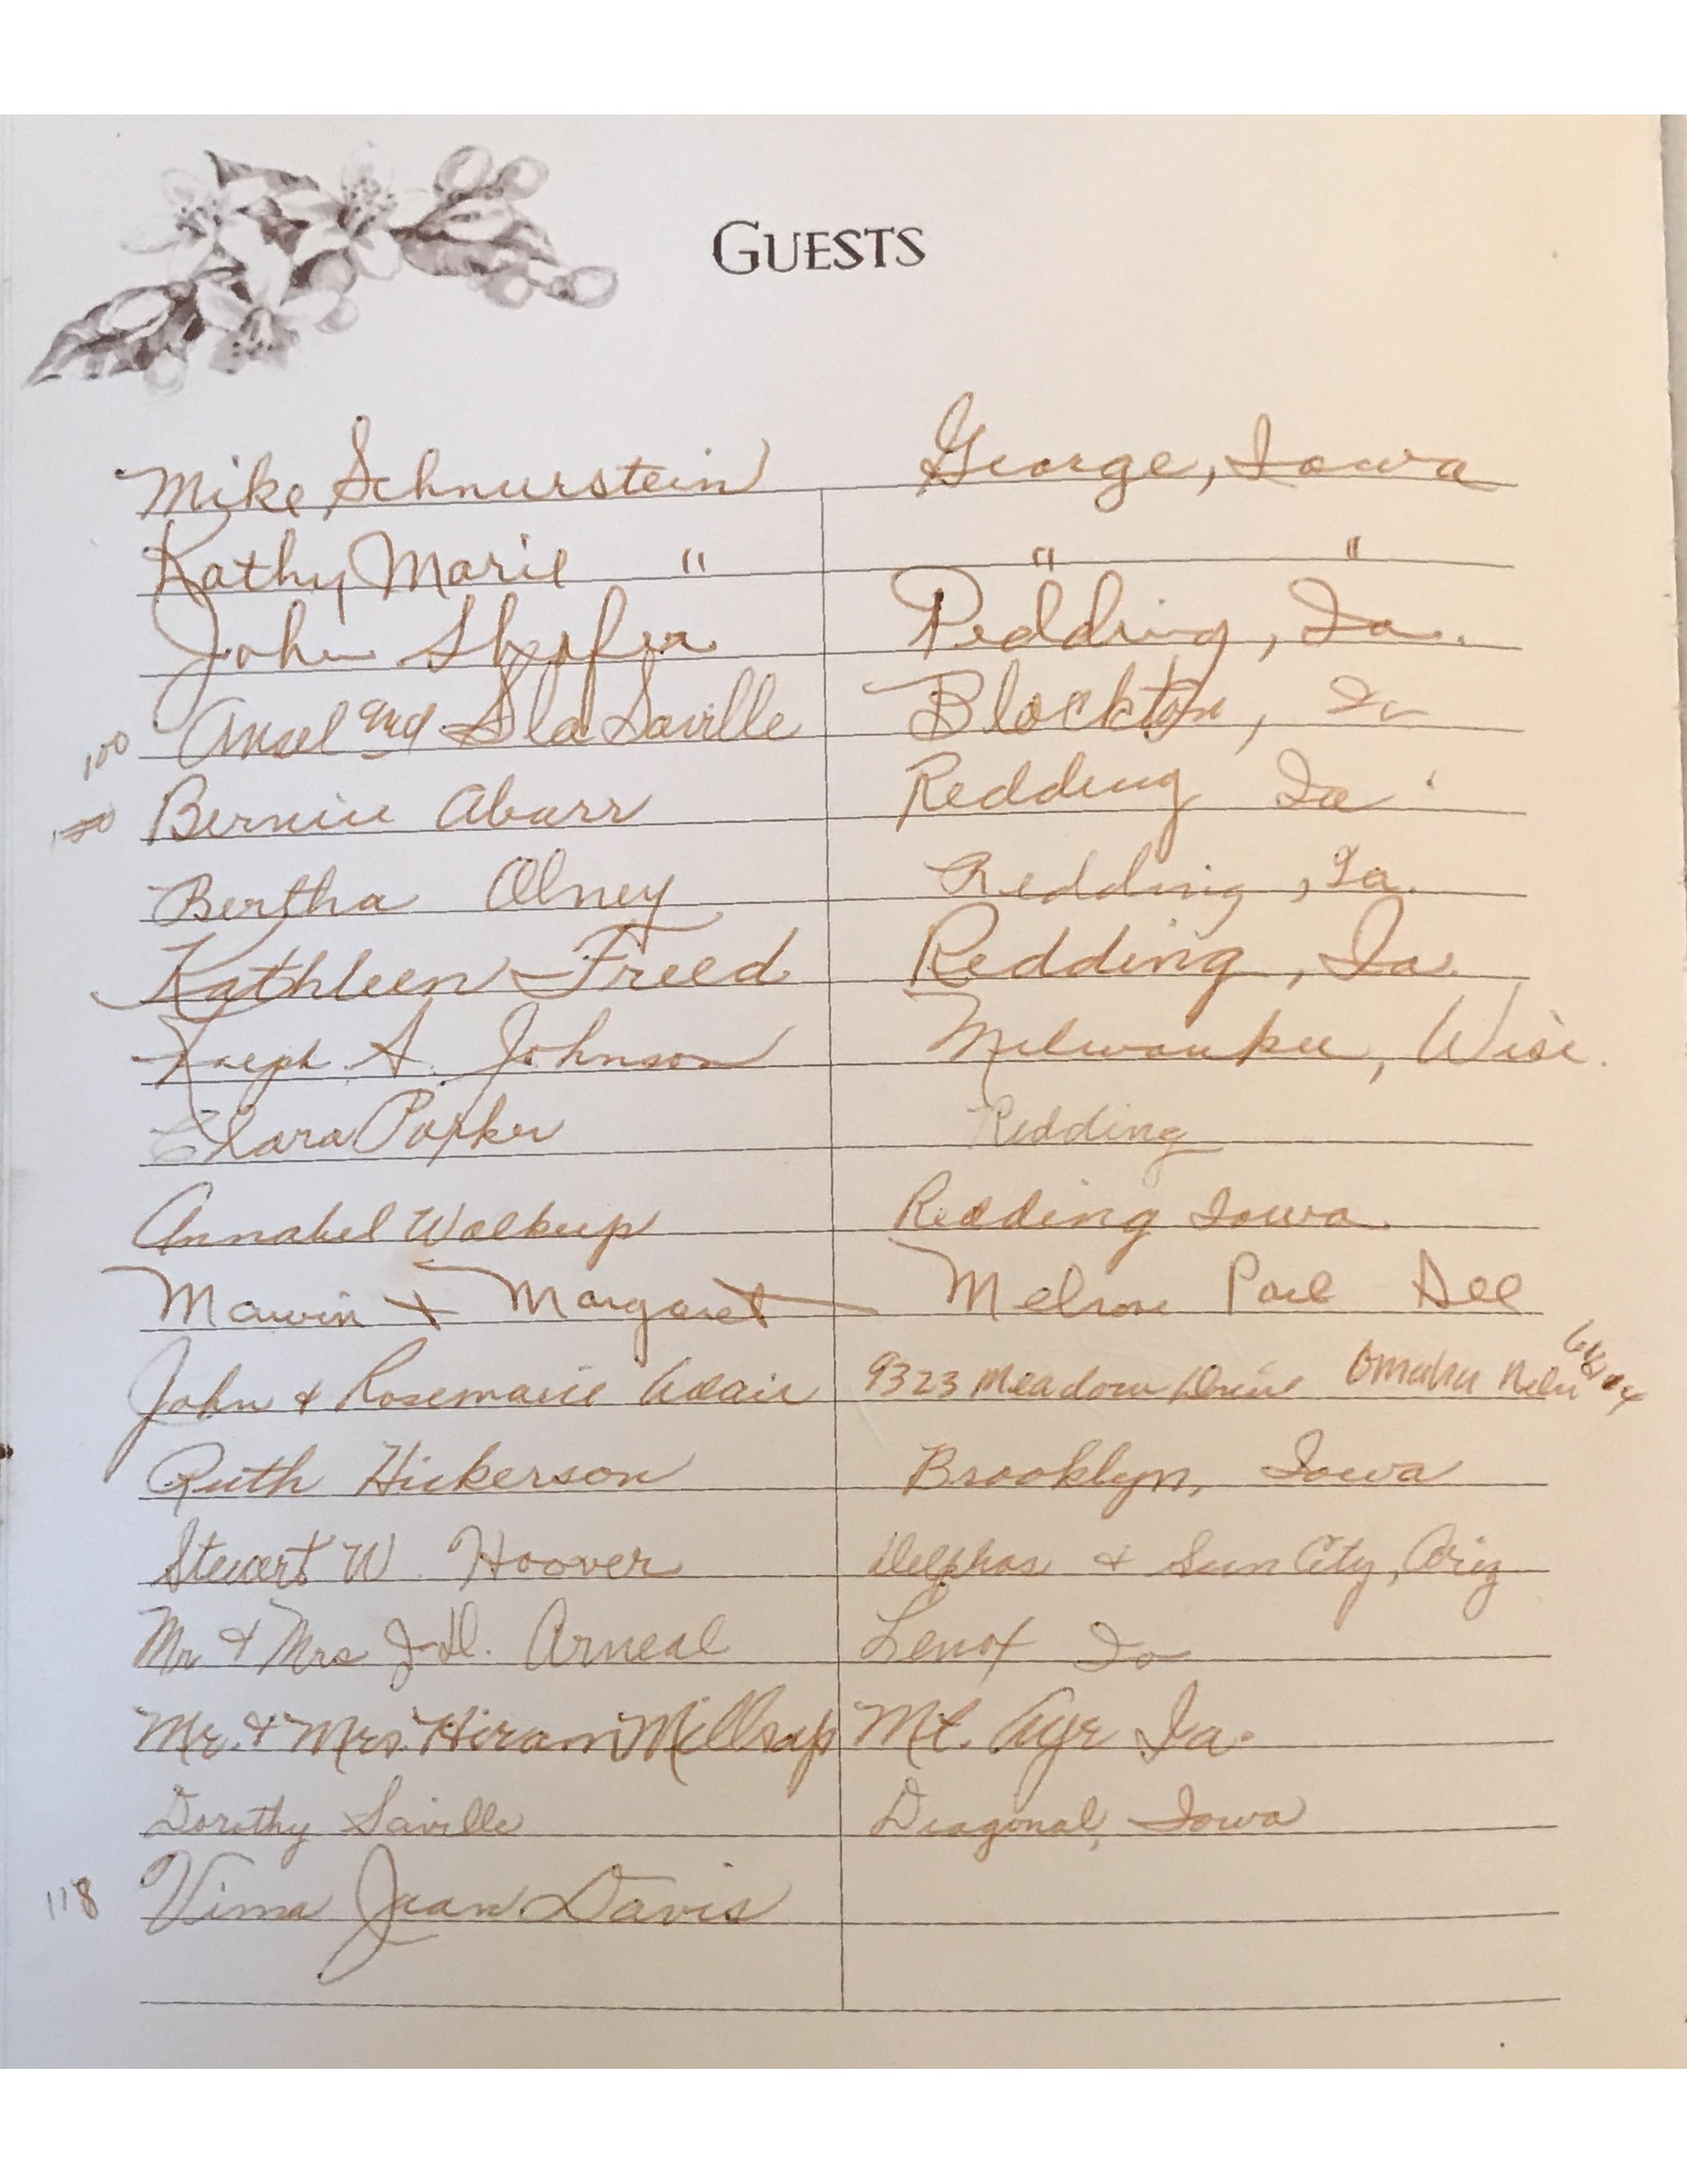 GUESTS
Mike Schnurstein George, Iowa
Kathy Marie " " "
John Shafer Redding, Ia.
100 Ansel and Sla Saville Blockton, Ia
Bernice Abarr Redding Ia
Bertha Olney Redding, Ia.
Kathleen Freed Redding, Ia.
Ralph A. Johnson Milwaukee, Wisc.
Clara Parker Redding
Annabel Walkup Redding Iowa
Marvin + Margaret Melrose Park Ill
John & Rosemarie Adair 9323 Meadow Drive Omaha Nebr
Ruth Hickerson Brooklyn, Iowa
Stewart W. Hoover Delphos & Sun City, Ariz
Mr & Mrs J. D. Arneal Lenox Ia
Mr. & Mrs. Hiram Millsap Mt. Ayr Ia.
Dorothy Saville Diagonal, Iowa
118 Vima Jean Davis